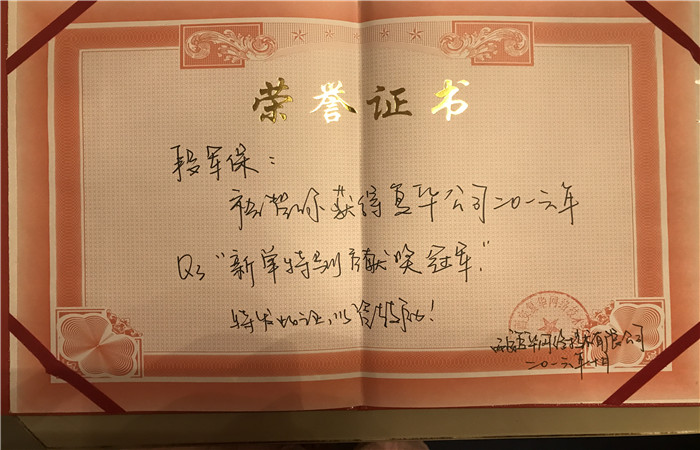 荣誉证书
段军保：
祝贺你获得复华公司二0一六年
Q3"新单特别贡献奖冠军"
特发此证，以资鼓励！
网络技术有限公司
二0一六年十月